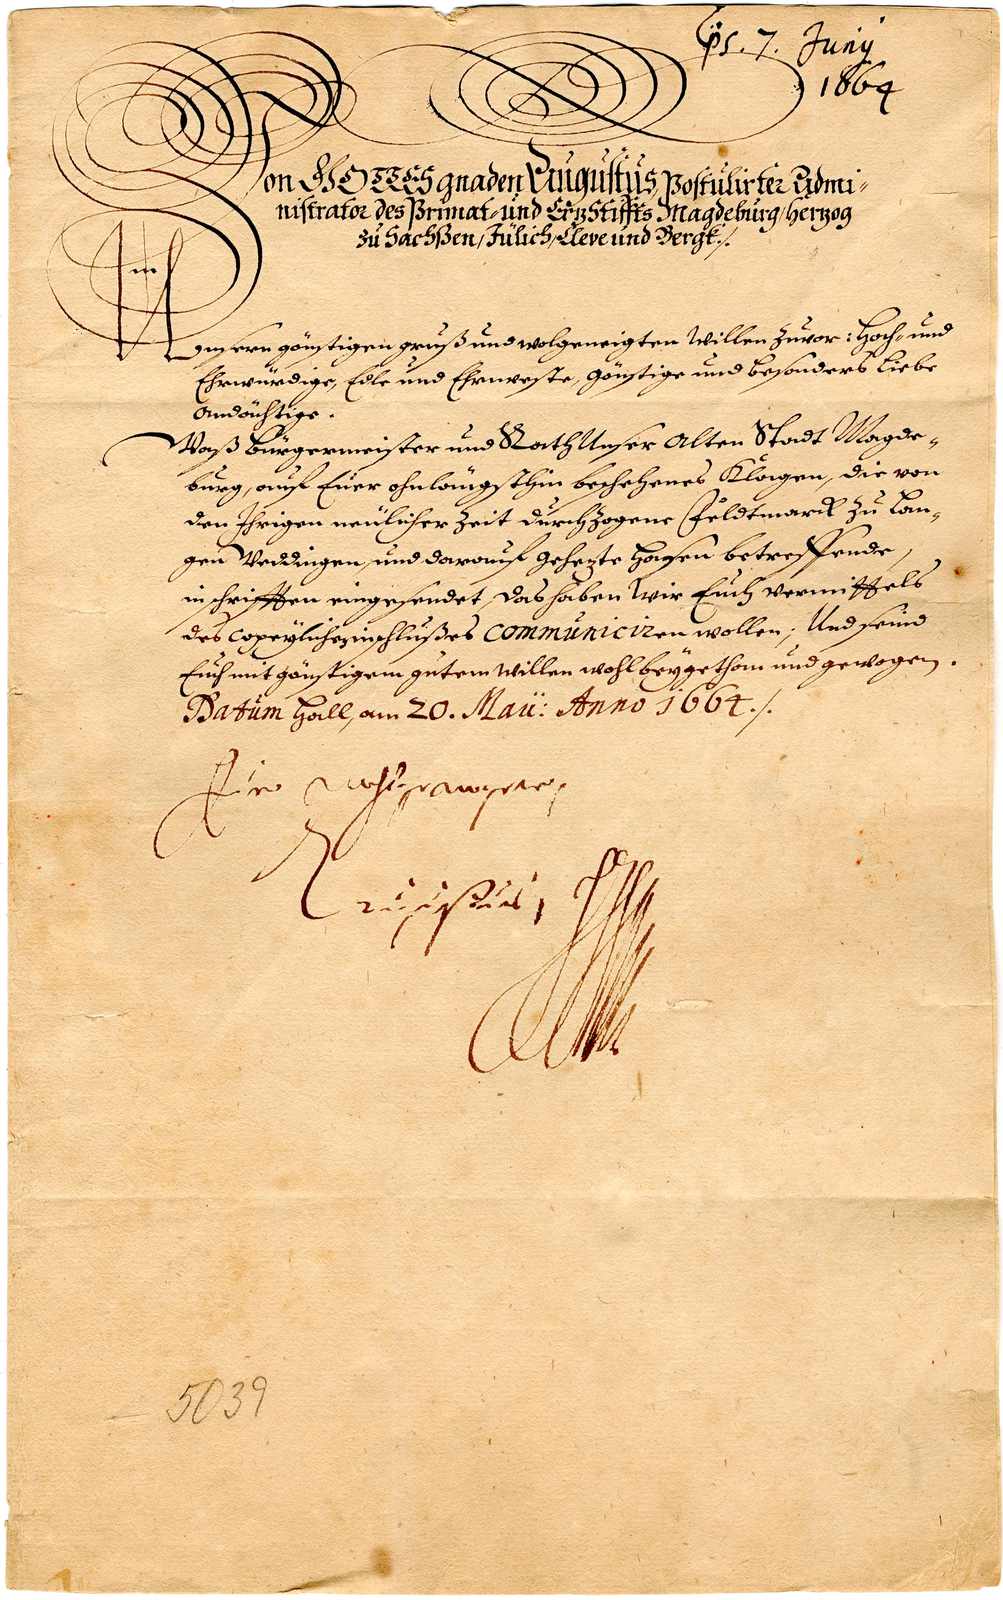 ps. 7. Junij
1664
Von GOTTES gnaden Augustus, Postulirter Admi-
nistrator des Primat- und ErtzStiffts Magdeburg / Hertzog
zu Sachßen / Jülich / Cleve und Bergk ./.
Unsern günstigen gruß und wolgeneigten Willen zuvor: Hoch- und
Ehrwürdige, Edle und Ehrnveste, günstige und besonders Liebe
Andächtige.
Waß Bürgermeister und Rath Unser Alten Stadt Magde-
burg, auf Euer ohnlängsthin beschehenes Klagen, die von
den Ihrigen neülicher Zeit durchzogene Feldtmarck zu Lan-
gen Weddingen, und darauf gehetzte Hasen betreffende,
in schrifften eingesendet, das haben Wir Euch vermittels
des copeylichen einschlußes communiciren wollen; Und seind
Euch mit günstigem gutem Willen wohl beygethan und gewogen.
Datum Hall, am 20. Maii: Anno 1664 ./.
Augustus,
5039